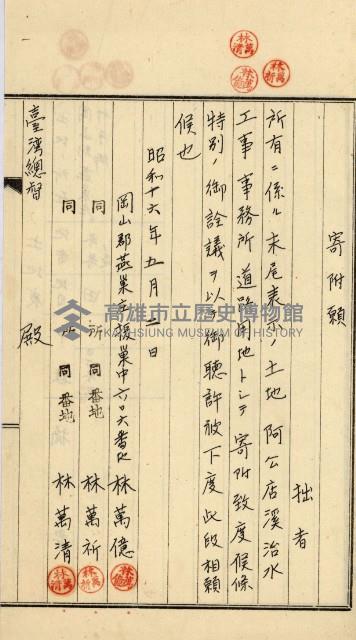 寄附願
拙者
所有ニ係ル末尾表示ノ土地阿公店溪治水
工事事務所道路用地トシテ寄附致度候條
特別ノ御詮議ヲ以テ御聽許被下度此段相願
候也
昭和十六年五月二日
岡山郡燕巢庄援巢中六〇六番地 林萬億
同 所 同番地 林萬祈
同 所 同番地 林萬清
臺灣總督 殿
高雄市立歷史博物館
KAOHSIUNG MUSEUM OF HISTORY